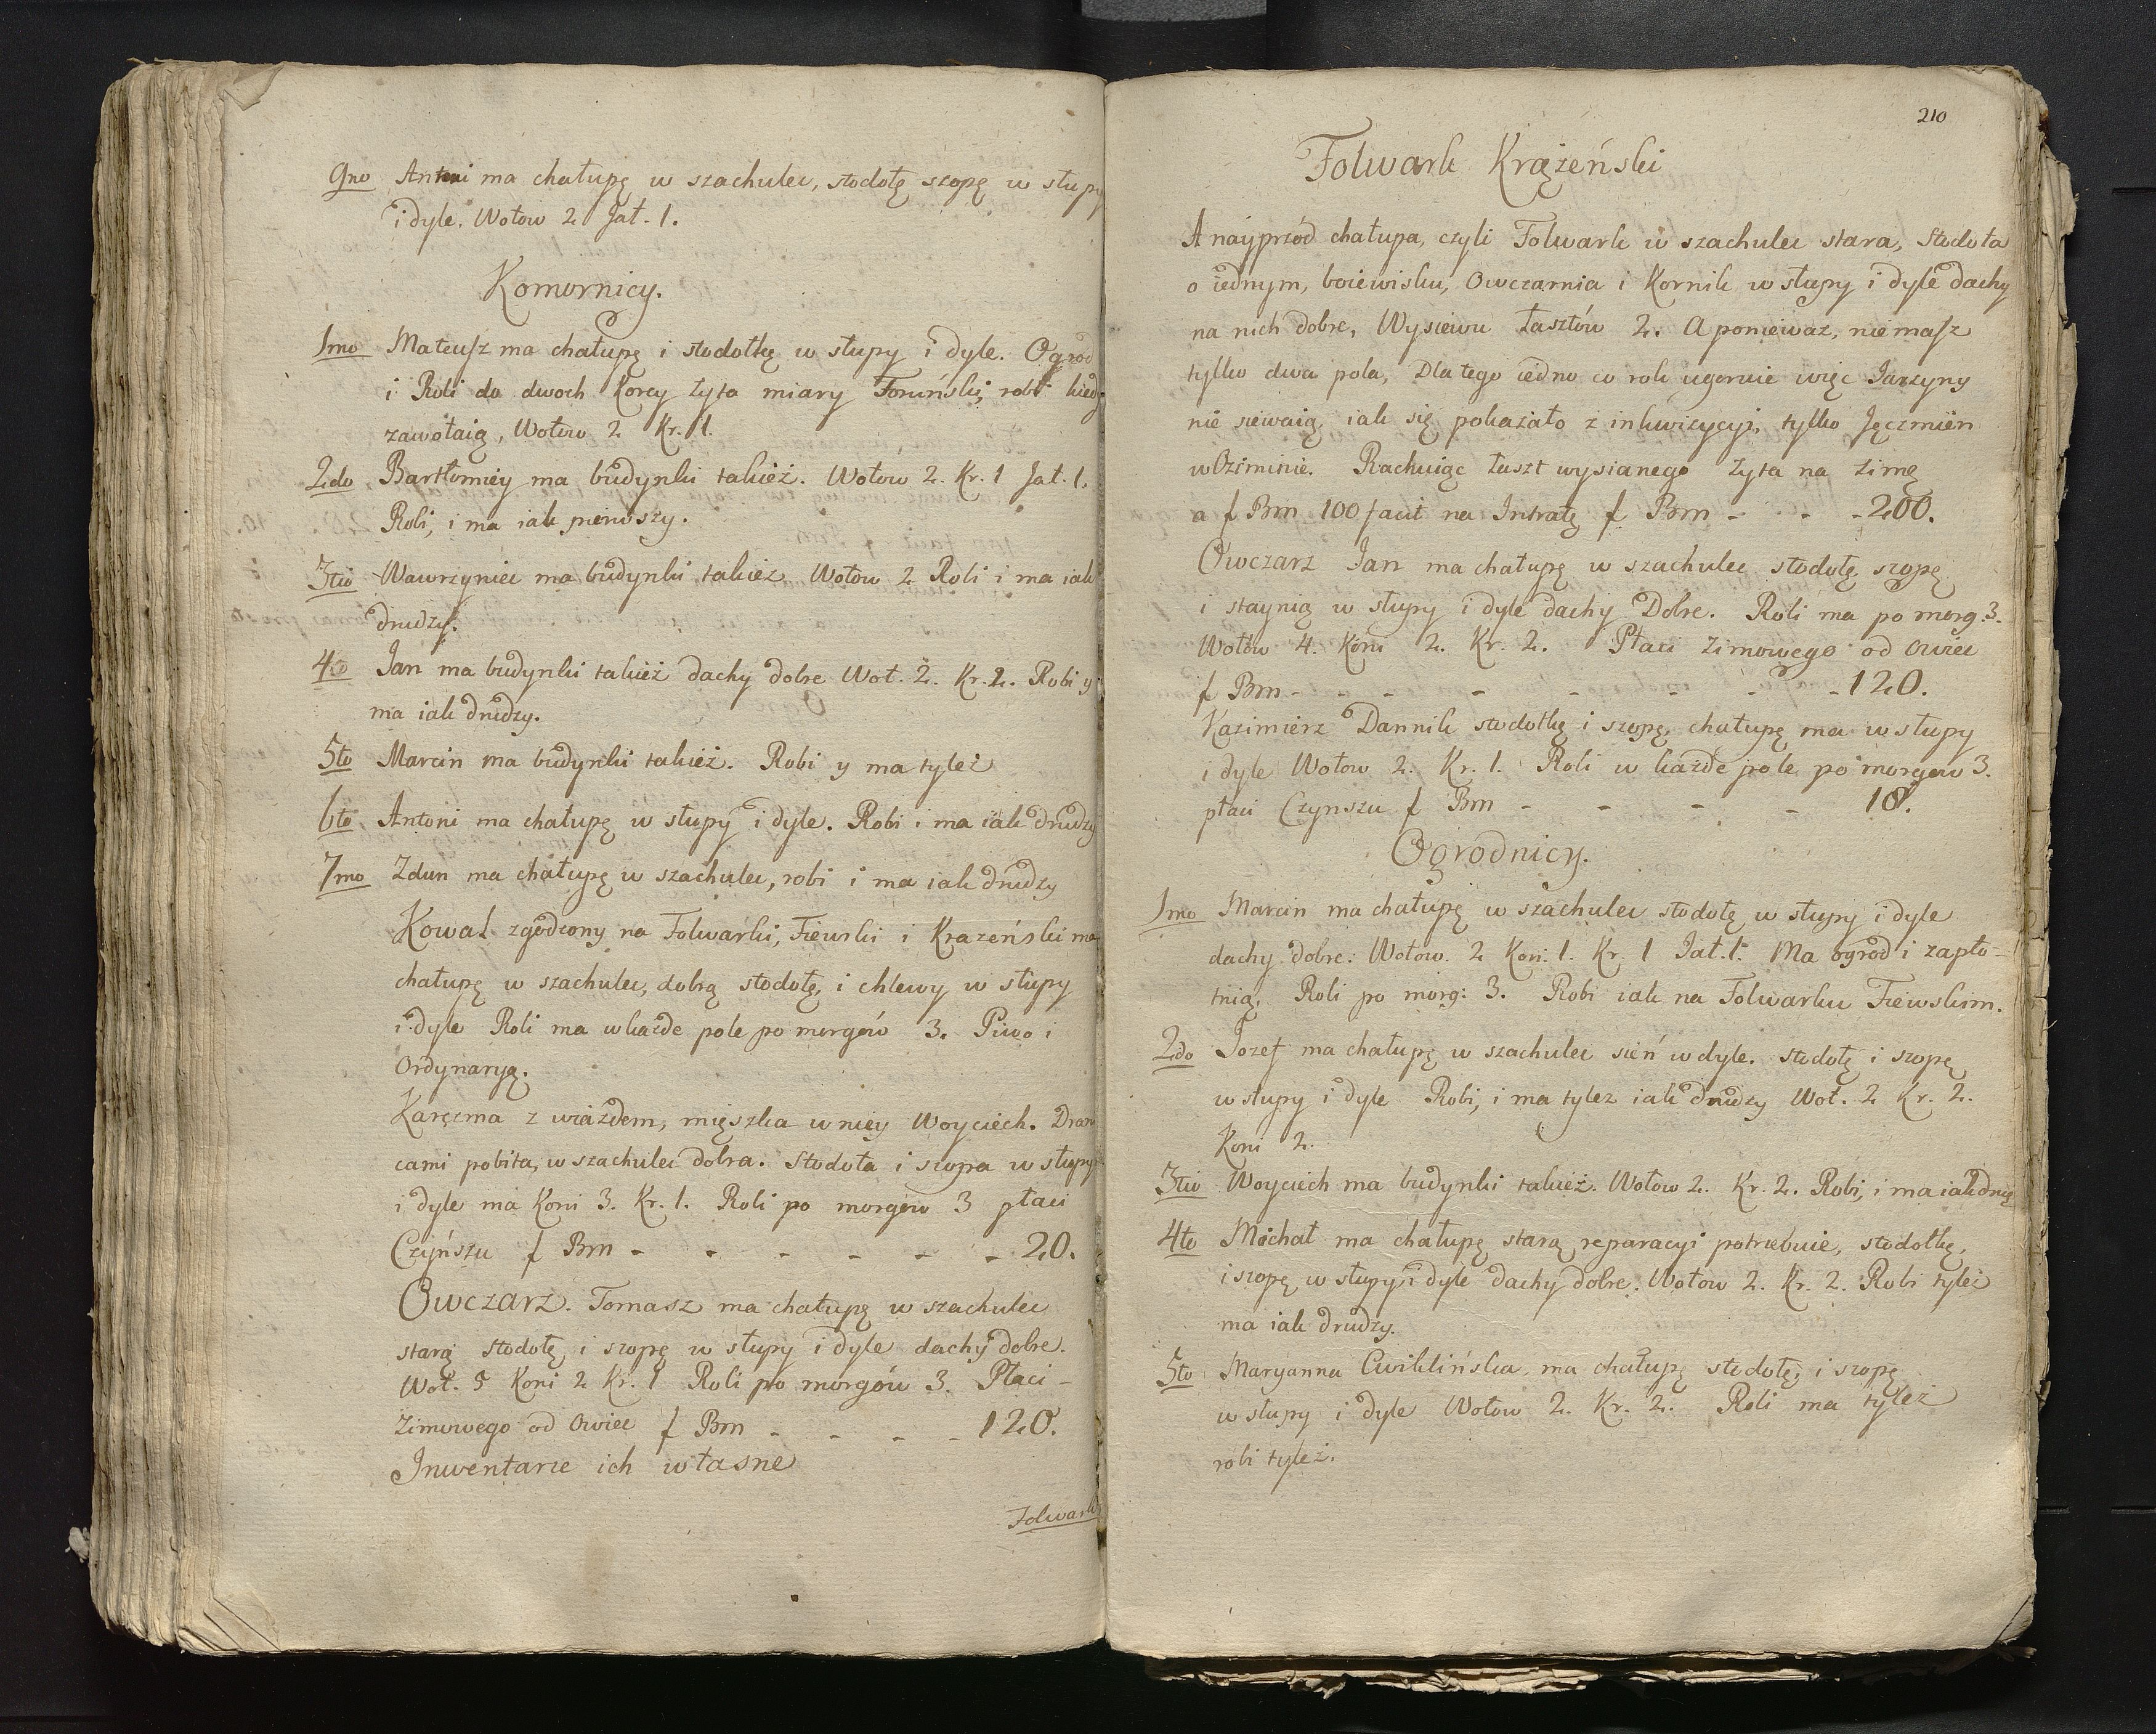 9no Antoni ma chałupę w szachulec, stodołę szopę w słupy
i dyle. Wołow 2 Jał. 1.
Komornicy.
1mo Mateusz ma chałupę i stodołkę w słupy i dyle. Ogrod
i Roli do dwoch Korcy żyta miary Toruński, robi kiedy
zawołaią, Wołow 2 Kr. 1.
2do Bartłomiey ma budynki takież. Wołow 2. Kr. 1 Jał. 1.
Robi, i ma iak pierwszy.
3tio Wawrzyniec ma budynki takież. Wołow 2 Robi i ma iak
drudzy.
4to Jan ma budynki takież dachy dobre Woł. 2. Kr. 2. Robi y
ma iak drudzy.
5to Marcin ma budynki takież. Robi y ma tyleż
6to Antoni ma chałupę w słupy i dyle. Robi i ma iak drudzy
7mo Zdun ma chałupę w szachulec, robi i ma iak drudzy
Kowal zgodzony na Folwarki, Fiewski i Krazeński ma
chałupę w szachulec, dobrą stodołę, i chlewy w słupy
i dyle Roli ma w każde pole po morgów 3. Piwo i
Ordynaryą.
Karczma z wiazdem, mięszka w niey Woyciech. Dran
cami pobita, w szachulec dobra. Stodoła i szopa w słupy
i dyle ma Koni 3. Kr. 1. Roli po morgow 3 płaci
Czyńszu f Brn - - - - - - 20.
Owczarz. Tomasz ma chałupę w szachulec
starą stodołę, i szopę w słupy i dyle dachy dobre.
Woł. 5 Koni 2 Kr. 1 Roli po morgów 3. Płaci -
Zimowego od Owiec f Brn - - - - 120.
Inwentarze ich własne
Folwark
210
Folwark Krążeński
A nayprzód chałupa, czyli Folwark w szachulec stara, Stodoła
o iednym, boiewisku, Owczarnia i Kornik w słupy i dyle dachy
na nich dobre, Wysiewu łasztów 2. A ponieważ, niemasz
tylko dwa pola, Dla tego iedno co rok ugoruie więc Jarzyny
nie siewaią, iak się pokazało z inkwizycyi, tylko Jęczmień
w Oziminie. Rachuiąc łaszt wysianego żyta na zimę
a f Brn 100 facit na Intratę f Brn - - - 200.
Owczarz Jan ma chałupę w szachulec stodołę szopę
i staynią w słupy i dyle dachy Dobre. Roli ma po morg. 3.
Wołów 4. Koni 2. Kr. 2. Płaci Zimowego od Owiec
f Brn - - - - - - - 120.
Kazimierz Dannik stodołkę i szopę, chałupę ma w słupy
i dyle Wołow 2. Kr. 1. Roli w każde pole po morgow 3.
płaci Czynszu f Brn - - - - 18.
Ogrodnicy.
1mo Marcin ma chałupę w szachulec stodołę w słupy i dyle
dachy dobre. Wołow. 2 Kon. 1. Kr. 1 Jał. 1. Ma ogrod i zapło-
tnią, Roli po morg: 3. Robi iak na Folwarku Fiewskim.
2do Jozef ma chałupę w szachulec sień w dyle. stodołę i szopę
w słupy i dyle Robi, i ma tylez iak drudzy Woł. 2 Kr. 2.
Koni 2.
3tio Woyciech ma budynki takież. Wołow 2. Kr. 2. Robi, i ma iak drug
4to Michał ma chałupę starą reparacyi potrzebuie, stodołkę,
i szopę w słupy i dyle dachy dobre. Wołow 2. Kr. 2. Robi tyleż
ma iak drudzy.
5to Maryanna Cwiklińska, ma chałupę stodołę, i szopę
w słupy i dyle Wołow 2. Kr. 2. Roli ma tyleż
robi tyleż.